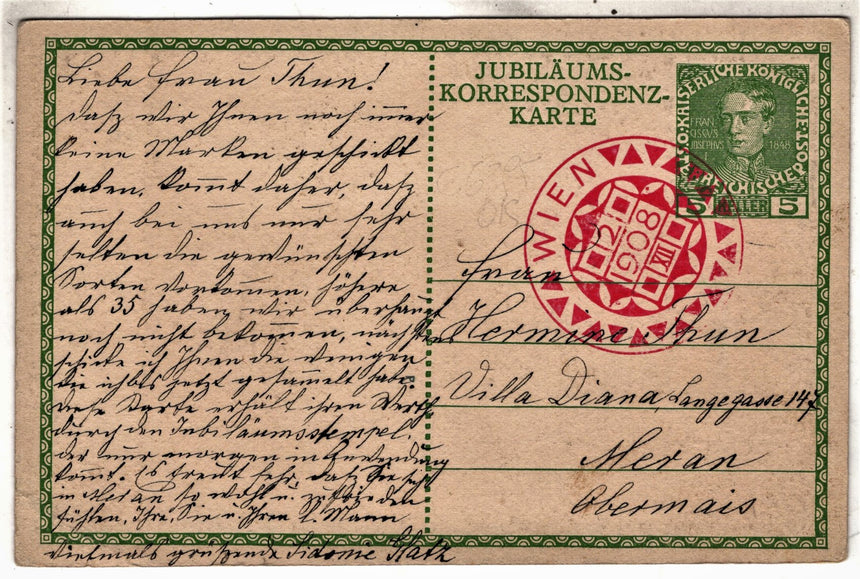 Liebe Frau Thun!
Daß wir Ihnen noch immer
keine Marken geschickt
haben, kommt daher, daß
auch bei uns nur sehr
selten die gewünschten
Sorten vorkommen, höhere
als 35 haben wir überhaupt
noch nicht bekommen, nächstens
schicke ich Ihnen die wenigen
die ich bis jetzt gesammelt habe.
Diese Karte erhält ihren Werth
durch den Jubiläumsstempel,
der nur morgen in Anwendung
kommt. Es freut sehr, daß Sie sich
in Meran so wohl u. zufrieden
fühlen. Ihre, Sie u. Ihren H. Mann
vielmals grüßende Sidonie Glatz
JUBILÄUMS-
KORRESPONDENZ-
KARTE
KAISERLICHE KÖNIGLICHE
ÖSTERREICHISCHE POST
FRAN
CISCVS
JOSEPHVS
1848
5 HELLER 5
WIEN
2
1908
XII
Frau
Hermine Thun
Villa Diana, Langegasse 147
Meran
Obermais